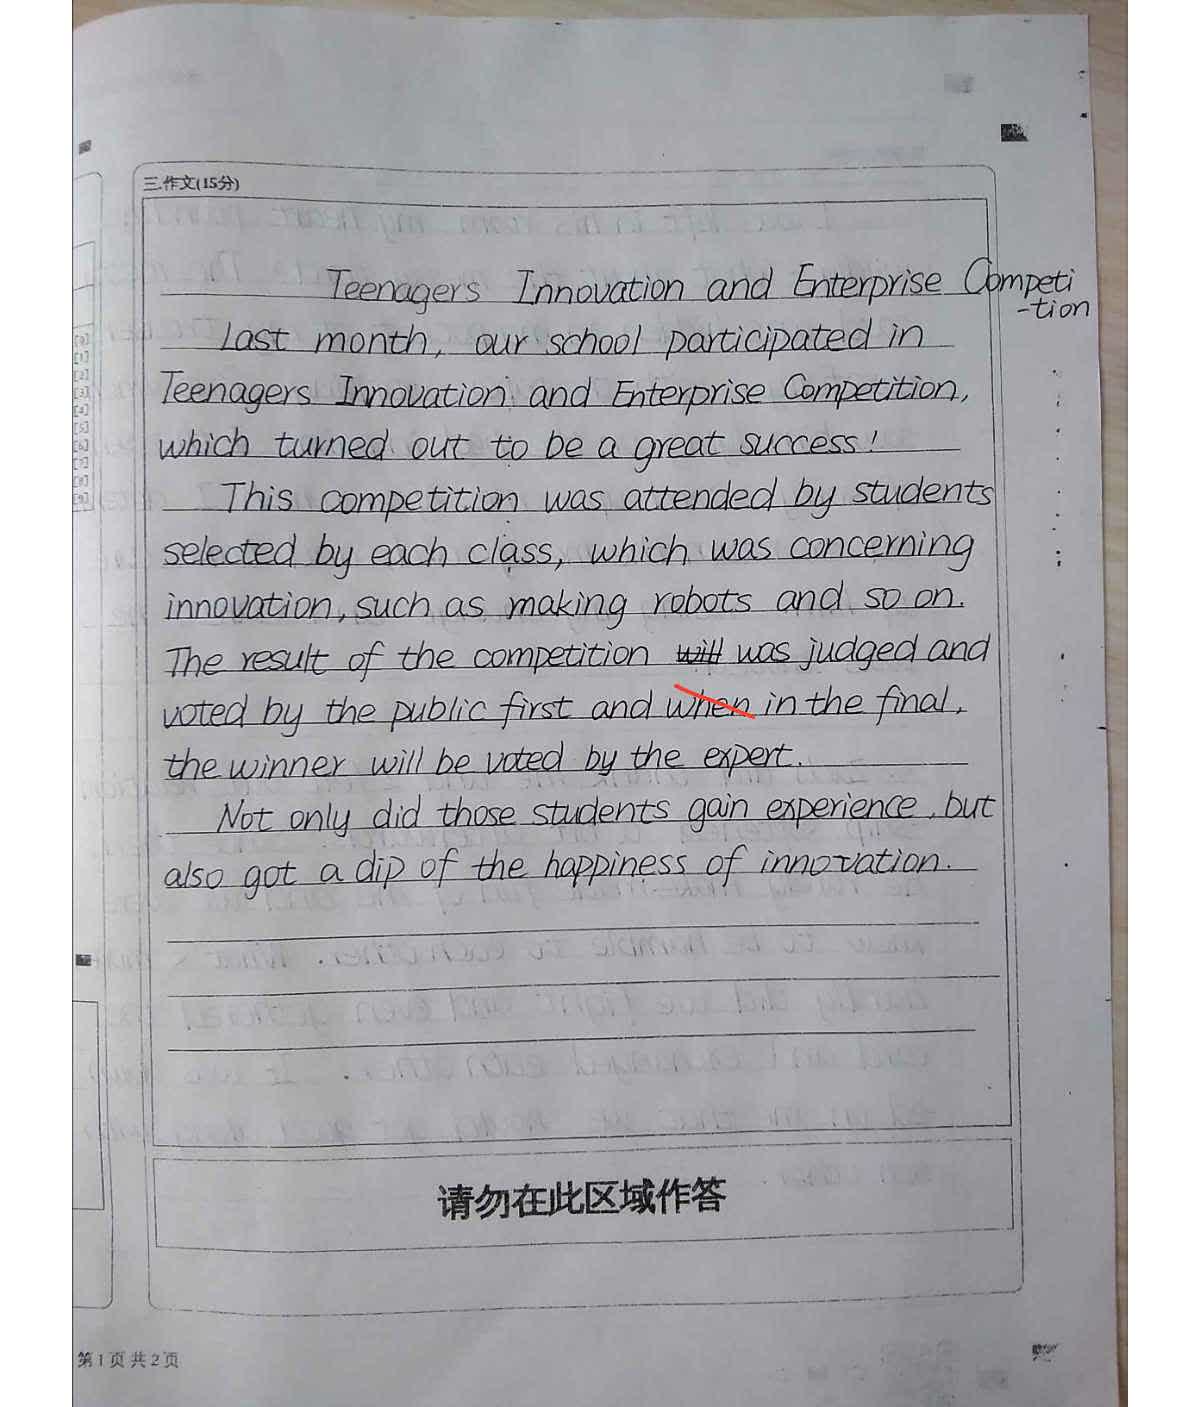 三.作文(15分)
Teenagers Innovation and Enterprise Competi
-tion
Last month, our school participated in
Teenagers Innovation and Enterprise Competition,
which turned out to be a great success!
This competition was attended by students
selected by each class, which was concerning
innovation, such as making robots and so on.
The result of the competition will was judged and
voted by the public first and when in the final,
the winner will be voted by the expert.
Not only did those students gain experience, but
also got a dip of the happiness of innovation.
请勿在此区域作答
第1页共2页